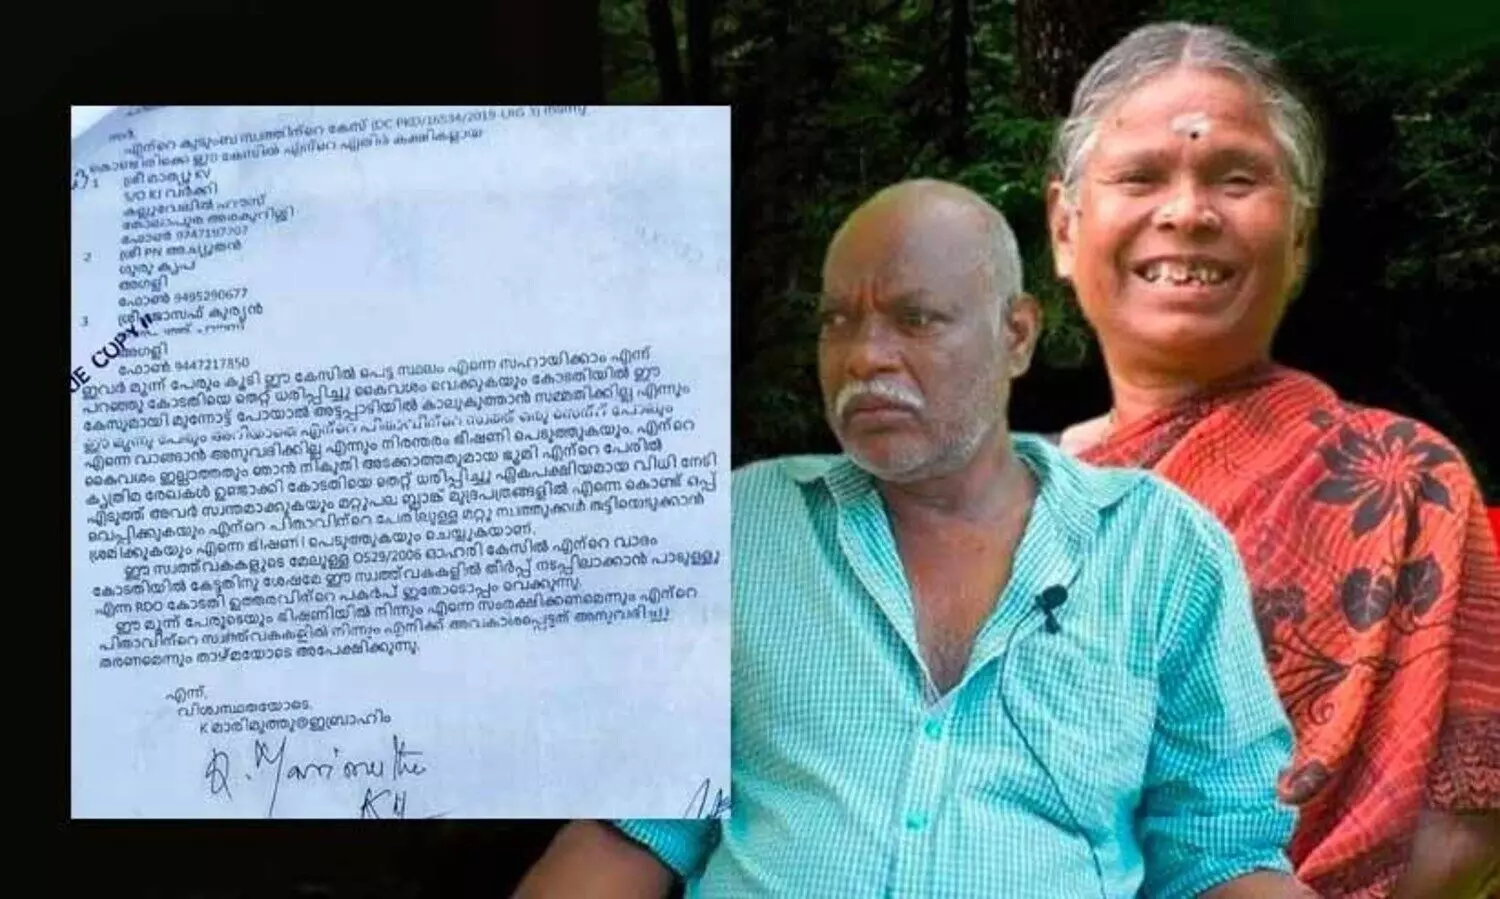 സർ,
എന്റെ കുടുംബ സ്വത്തിന്റെ കേസ് (DC PKD/16534/2019-LRG 3) നടന്നു
കൊണ്ടിരിക്കെ ഈ കേസിൽ എന്റെ എതിർ കക്ഷികളായ
1 ശ്രീ മാത്യു KV
S/O KJ വർക്കി
കല്ലുവേലിൽ ഹൗസ്
ഫോൺ 9747197707
2 ശ്രീ PN അച്യുതൻ
ഗുരു കൃപ
അഗളി
ഫോൺ 9495290677
3 ശ്രീ ജോസഫ് കുര്യൻ
ഹൗസ്
അഗളി
ഫോൺ 9447217850
UE COPY
ഇവർ മൂന്ന് പേരും കൂടി ഈ കേസിൽ പെട്ട സ്ഥലം എന്നെ സഹായിക്കാം എന്ന്
പറഞ്ഞു കോടതിയെ തെറ്റ് ധരിപ്പിച്ചു കൈവശം വെക്കുകയും കോടതിയിൽ ഈ
കേസുമായി മുന്നോട്ട് പോയാൽ അട്ടപ്പാടിയിൽ കാലുകുത്താൻ സമ്മതിക്കില്ല എന്നും
ഈ മൂന്നു പേരും അറിയാതെ എന്റെ പിതാവിന്റെ സ്വത്ത് ഒരു സെന്റ് പോലും
എന്നെ വാങ്ങാൻ അനുവദിക്കില്ല എന്നും നിരന്തരം ഭീഷണി പെടുത്തുകയും. എന്റെ
കൈവശം ഇല്ലാത്തതും ഞാൻ നികുതി അടക്കാത്തതുമായ ഭൂമി എന്റെ പേരിൽ
കൃത്രിമ രേഖകൾ ഉണ്ടാക്കി കോടതിയെ തെറ്റ് ധരിപ്പിച്ചു ഏകപക്ഷിയമായ വിധി നേടി
എടുത്ത് അവർ സ്വന്തമാക്കുകയും മറ്റുപല ബ്ലാങ്ക് മുദ്രപത്രങ്ങളിൽ എന്നെ കൊണ്ട് ഒപ്പ്
വെപ്പിക്കുകയും എന്റെ പിതാവിന്റെ പേരിലുള്ള മറ്റു സ്വത്തുക്കൾ തട്ടിയെടുക്കാൻ
ശ്രമിക്കുകയും എന്നെ ഭീഷണി പെടുത്തുകയും ചെയ്യുകയാണ്.
ഈ സ്വത്ത്‌വകകളുടെ മേലുള്ള OS29/2006 ഓഹരി കേസിൽ എന്റെ വാദം
കോടതിയിൽ കേട്ടതിനു ശേഷമേ ഈ സ്വത്ത്‌വകകളിൽ തീർപ്പ് നടപ്പിലാക്കാൻ പാടുള്ളു
എന്ന RDO കോടതി ഉത്തരവിന്റെ പകർപ് ഇതോടൊപ്പം വെക്കുന്നു.
ഈ മൂന്ന് പേരുടെയും ഭീഷണിയിൽ നിന്നും എന്നെ സംരക്ഷിക്കണമെന്നും എന്റെ
പിതാവിന്റെ സ്വത്ത്‌വകകളിൽ നിന്നും എനിക്ക് അവകാശപ്പെട്ടത് അനുവദിച്ചു
തരണമെന്നും താഴ്മയോടെ അപേക്ഷിക്കുന്നു.
എന്ന്,
വിശ്വസ്ഥതയോടെ,
K മാരിമുത്തു@ഇബ്രാഹിം
K. Marimuthu